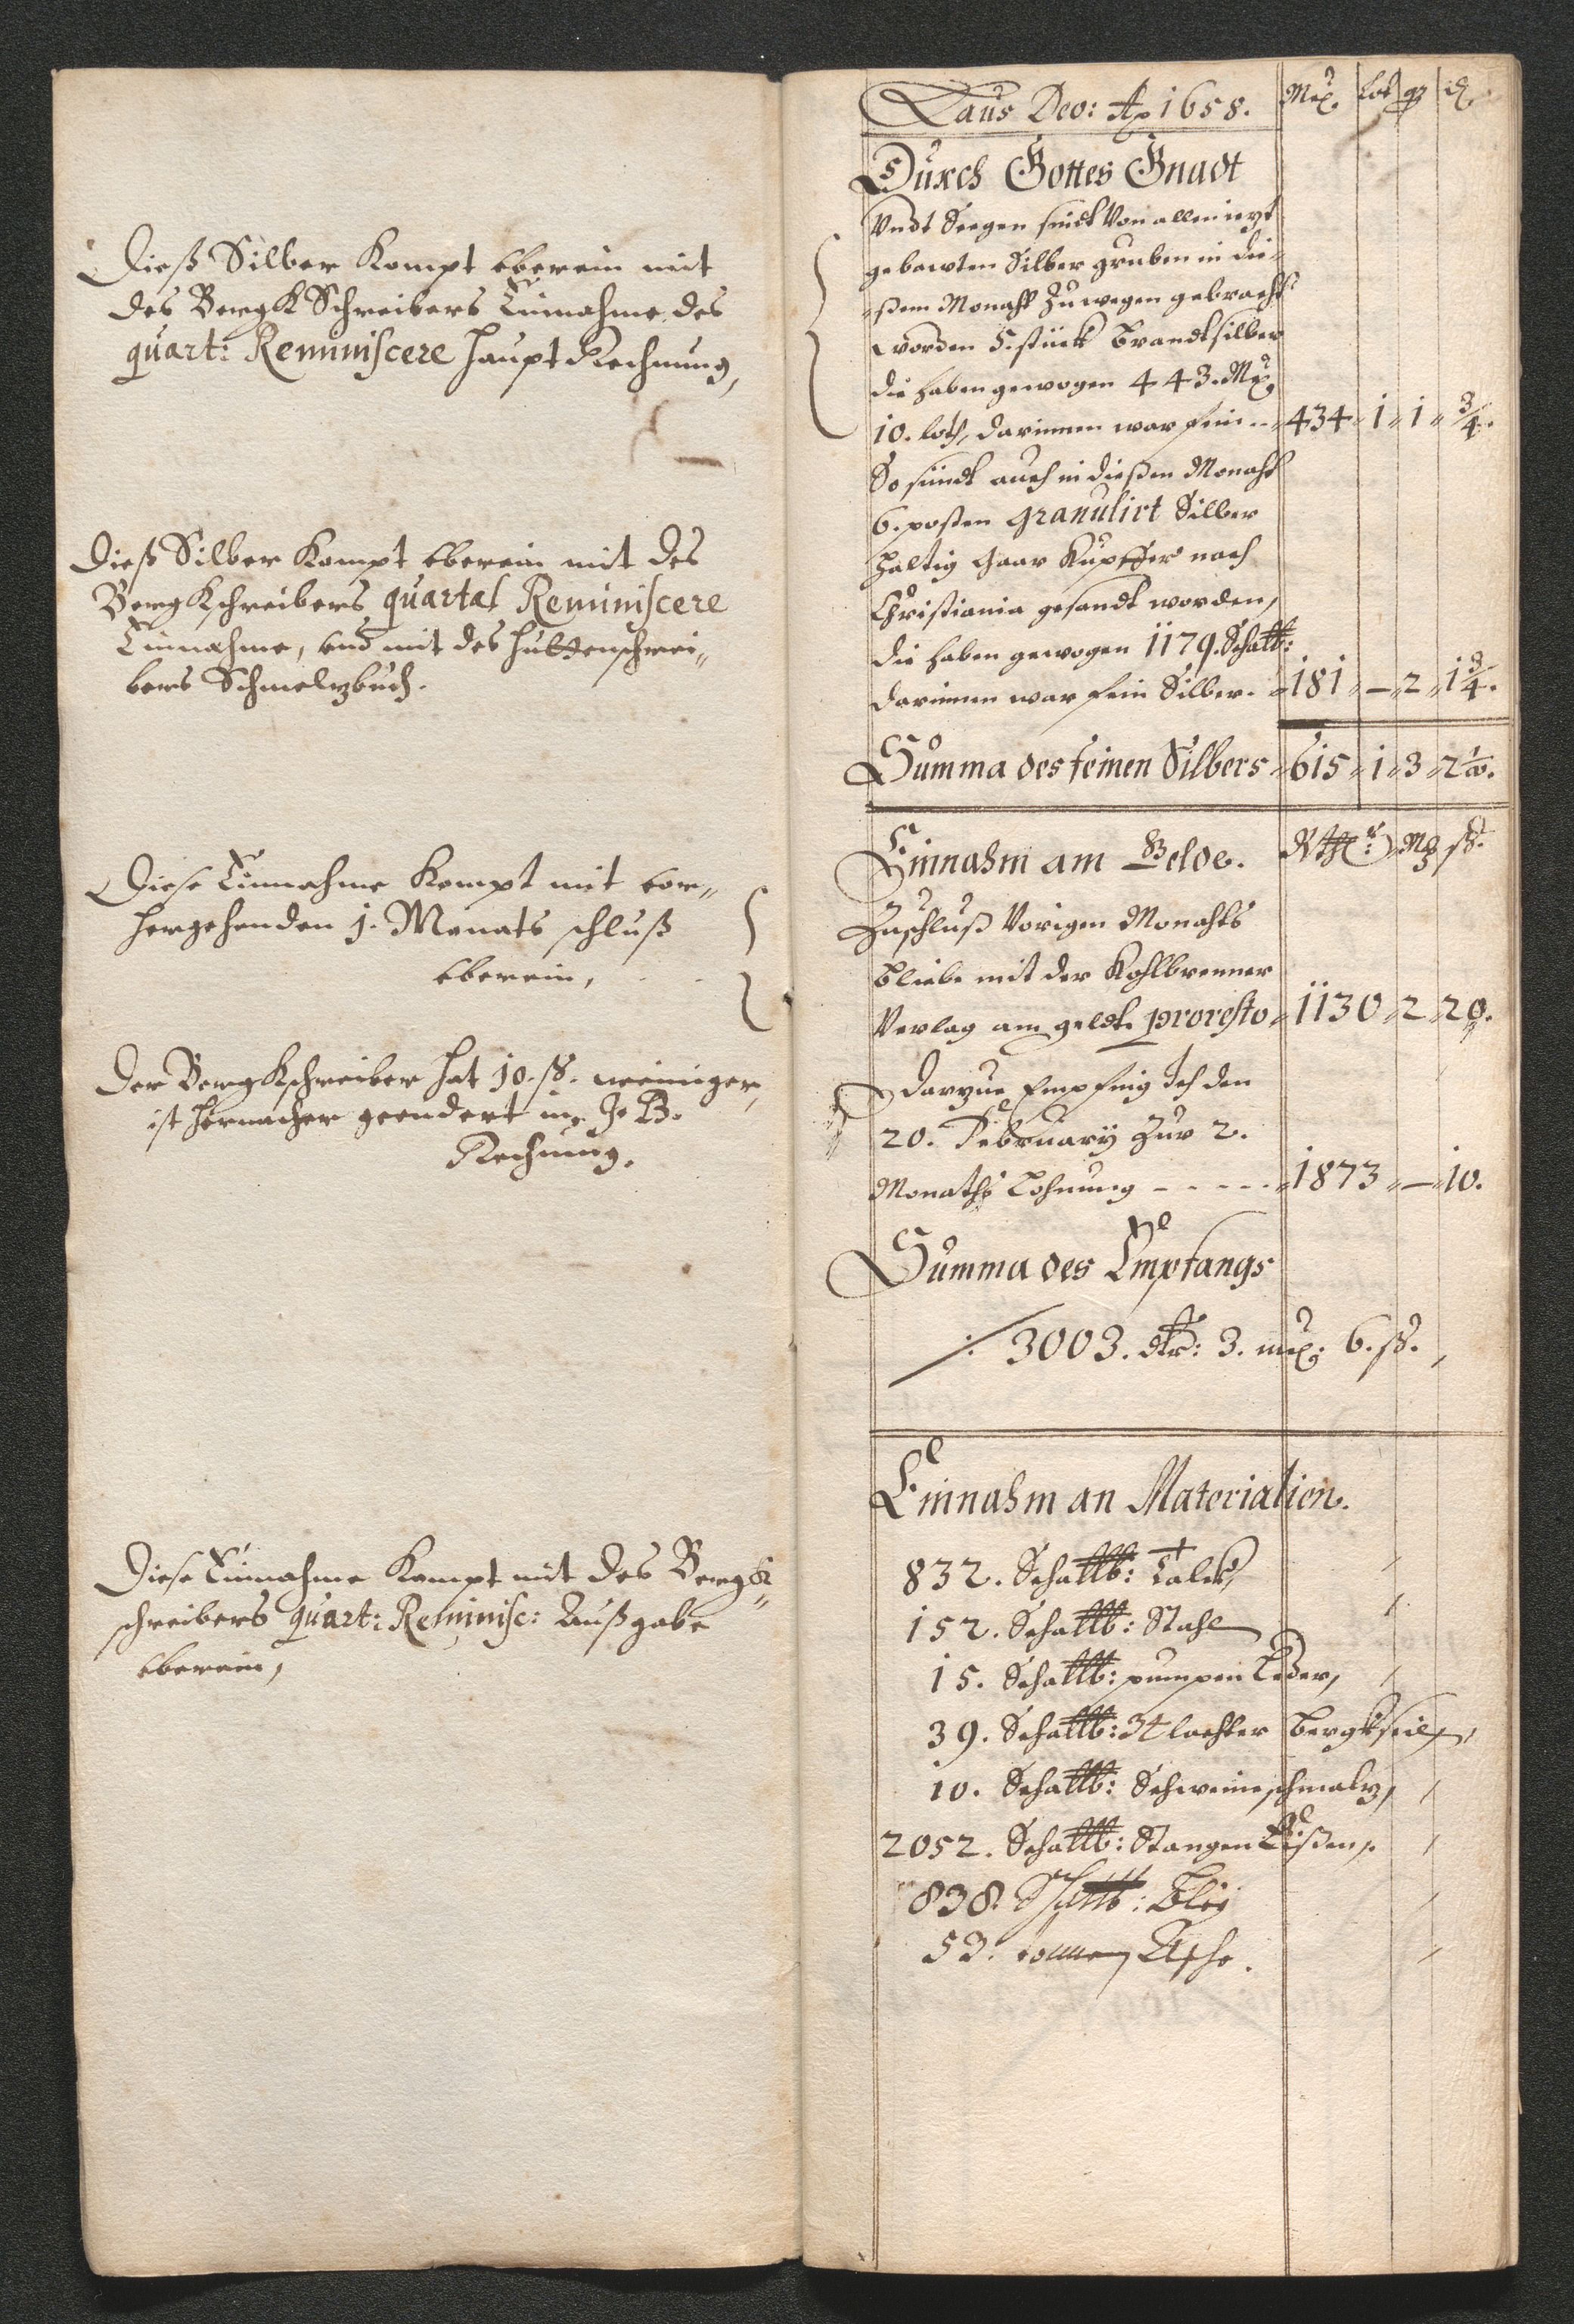 Dieß Silber Kompt eberein mit
des BergkSchreibers Einnahme des
quart: Reminiscere Haupt Rechnung,
Dieß Silber Kompt eberein mit des
Bergkschreibers quartal Reminiscere
Einnahme, und mit des Hüttenschrei„
bers Schmeltzbuch.
Diese Einnahme Kompt mit vor„
hergehenden 1. Monats schluß
eberein,
Der Bergkschreiber hat 10. ß. weiniger,
ist hernacher geendert in
Rechnung.
Diese Einnahme Kompt mit des Bergk„
schreibers quart: Reminisc: Außgabe
eberein,
Laus Deo: Ao 1658. Mrk. Lot q d
Durch Gottes Gnadt
Undt Seegen sindt Von allen ietzt
gebawten Silber gruben in die„
ßem Monaht Zu wegen gebracht
worden 5. stück Brandtsilber
die haben gewogen 443. Mrk
10. loth, darinnen war fein 434 „ 1 „ 1 „ 3/4.
So sindt auch in dießen Monaht
6. posten granulirt Silber
haltig Gaar Kupffer nach
Christiania gesandt worden,
die haben gewogen 1179. Schallb:
darinnen war fein Silber. „ 181 „ — „ 2 „ 1 3/4.
Summa des feinen Silbers „ 615 „ 1 „ 3 „ 2 1/2.
Einnahm am Gelde. Rthlr: Mk ß.
Zuschluß Vorigen Monahts
bliebe mit der Kohlbrenner
Verlag am geldt. pro resto „ 1130 „ 2 „ 20.
Darzue Empfing Ich den
20. February Zur 2.
Monaths Lohnung - - - - - „ 1873 „ — „ 10.
Summa des Empfangs
/. 3003. dlr: 3. mrk: 6. ß.
Einnahm an Materialien.
832. Schallb: Talck,
152. Schallb: Stahl
15. Schallb: pumpen Leder,
39. Schallb: 34 lachter Bergkseil,
10. Schallb: Schweineschmaltz,
2052. Schallb: Stangen Eißen,
838. Schallb: Bley
53. tonnen Asche.